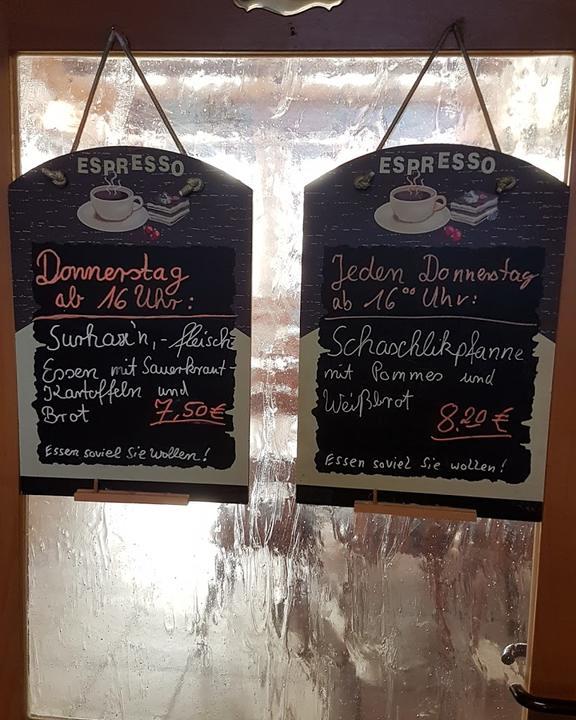 ESPRESSO
Donnerstag
ab 16 Uhr:
Surhax'n,-fleisch
Essen mit Sauerkraut-
Kartoffeln und
Brot 7,50€
Essen soviel Sie wollen!
ESPRESSO
Jeden Donnerstag
ab 16°° Uhr:
Schaschlikpfanne
mit Pommes und
Weißbrot
8.20 €
Essen soviel Sie wollen!